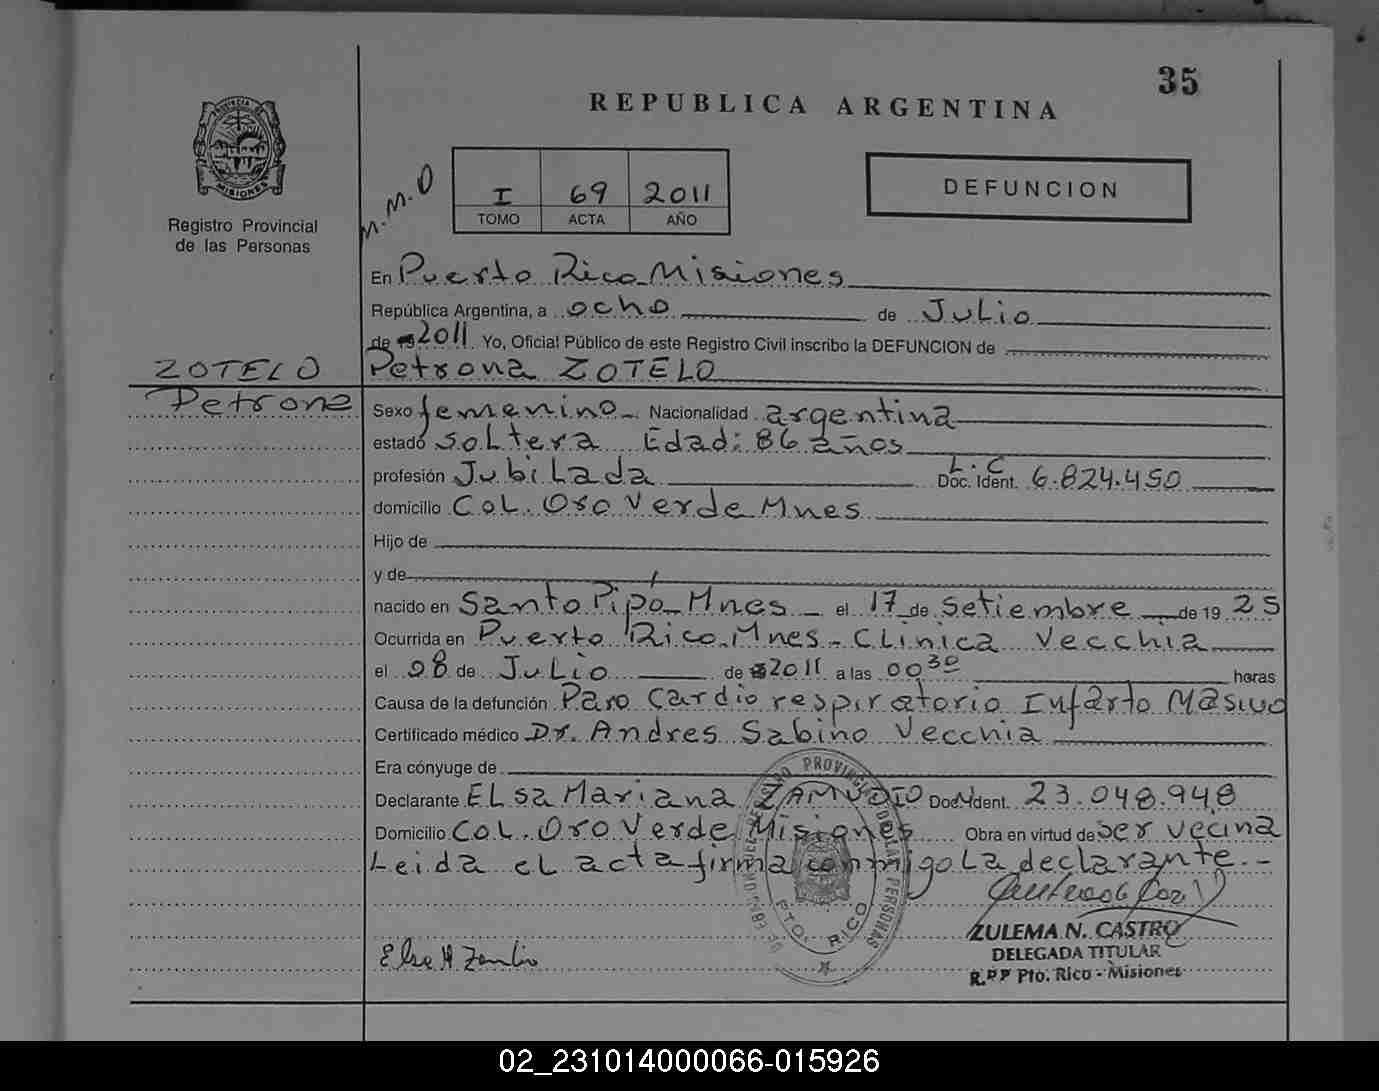 35
REPUBLICA ARGENTINA
PROVINCIA DE
MISIONES
Registro Provincial
de las Personas
M.M.O
I 69 2011
TOMO ACTA AÑO
DEFUNCION
En Puerto Rico Misiones
República Argentina, a ocho de Julio
de 2011 Yo, Oficial Público de este Registro Civil inscribo la DEFUNCION de
ZOTELO Petrona ZOTELO
Petrona
Sexo femenino Nacionalidad argentina
estado soltera Edad: 86 años
profesión Jubilada L.C Doc. Ident. 6.824.450
domicilio Col. Oro Verde Mnes
Hijo de
y de
nacido en Santo Pipó Mnes el 17 de setiembre de 1925
Ocurrida en Puerto Rico. Mnes - Clinica Vecchia
el 08 de Julio de 2011 a las 00 30 horas
Causa de la defunción Paro Cardio respiratorio Infarto Masivo
Certificado médico Dr. Andres Sabino Vecchia
Era cónyuge de
Declarante Elsa Mariana ZAMUDIO Doc. Ident. 23.048.948
Domicilio Col. Oro Verde Misiones Obra en virtud de ser vecina
Leida el acta firma conmigo La declarante.-
REGISTRO PROVINCIAL DE LAS PERSONAS
PTO. RICO
ZULEMA N. CASTRO
DELEGADA TITULAR
R.P.P Pto. Rico - Misiones
02_231014000066-015926